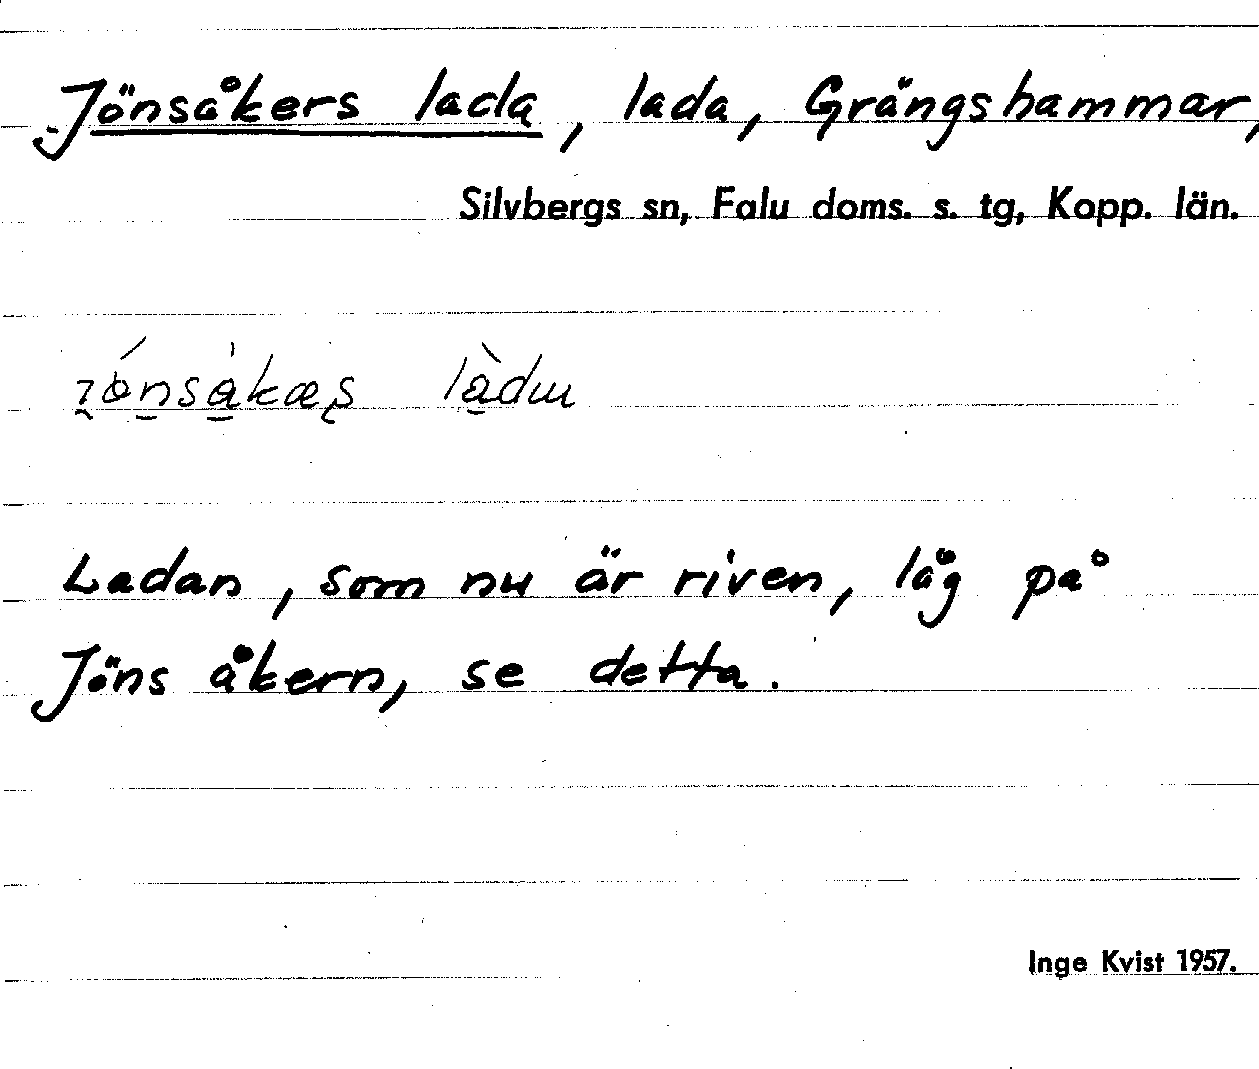 Jönsåkers lada, lada, Grängshammar,
Silvbergs sn, Falu doms. s. tg, Kopp. län.
Ladan, som nu är riven, låg på
Jöns åkern, se detta.
Inge Kvist 1957.